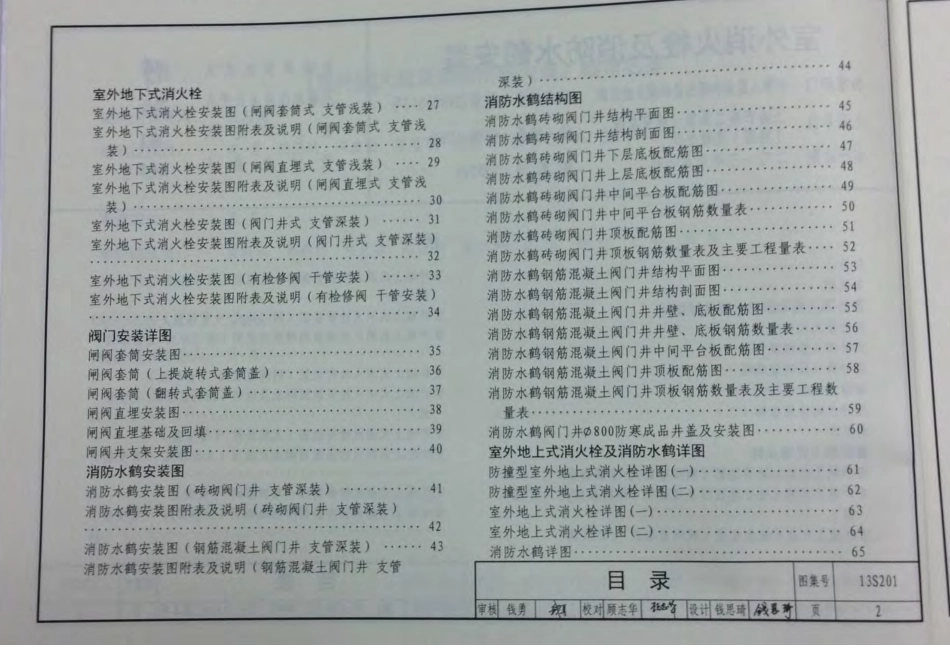 室外地下式消火栓
室外地下式消火栓安装图(闸阀套筒式 支管浅装) ···· 27
室外地下式消火栓安装图附表及说明(闸阀套筒式 支管浅
装)···· 28
室外地下式消火栓安装图(闸阀直埋式 支管浅装) ···· 29
室外地下式消火栓安装图附表及说明(闸阀直埋式 支管浅
装)···· 30
室外地下式消火栓安装图(阀门井式 支管深装) ···· 31
室外地下式消火栓安装图附表及说明(阀门井式 支管深装)
···· 32
室外地下式消火栓安装图(有检修阀 干管安装) ···· 33
室外地下式消火栓安装图附表及说明(有检修阀 干管安装)
···· 34
阀门安装详图
闸阀套筒安装图···· 35
闸阀套筒(上提旋转式套筒盖)···· 36
闸阀套筒(翻转式套筒盖)···· 37
闸阀直埋安装图···· 38
闸阀直埋基础及回填···· 39
闸阀井支架安装图···· 40
消防水鹤安装图
消防水鹤安装图(砖砌阀门井 支管深装) ···· 41
消防水鹤安装图附表及说明(砖砌阀门井 支管深装)
···· 42
消防水鹤安装图(钢筋混凝土阀门井 支管深装) ···· 43
消防水鹤安装图附表及说明(钢筋混凝土阀门井 支管
深装)···· 44
消防水鹤结构图
消防水鹤砖砌阀门井结构平面图···· 45
消防水鹤砖砌阀门井结构剖面图···· 46
消防水鹤砖砌阀门井下层底板配筋图···· 47
消防水鹤砖砌阀门井上层底板配筋图···· 48
消防水鹤砖砌阀门井中间平台板配筋图···· 49
消防水鹤砖砌阀门井中间平台板钢筋数量表···· 50
消防水鹤砖砌阀门井顶板配筋图···· 51
消防水鹤砖砌阀门井顶板钢筋数量表及主要工程量表···· 52
消防水鹤钢筋混凝土阀门井结构平面图···· 53
消防水鹤钢筋混凝土阀门井结构剖面图···· 54
消防水鹤钢筋混凝土阀门井井壁、底板配筋图···· 55
消防水鹤钢筋混凝土阀门井井壁、底板钢筋数量表···· 56
消防水鹤钢筋混凝土阀门井中间平台板配筋图···· 57
消防水鹤钢筋混凝土阀门井顶板配筋图···· 58
消防水鹤钢筋混凝土阀门井顶板钢筋数量表及主要工程数
量表···· 59
消防水鹤阀门井Ø800防寒成品井盖及安装图···· 60
室外地上式消火栓及消防水鹤详图
防撞型室外地上式消火栓详图(一)···· 61
防撞型室外地上式消火栓详图(二)···· 62
室外地上式消火栓详图(一)···· 63
室外地上式消火栓详图(二)···· 64
消防水鹤详图···· 65
目 录 图集号 13S201
审核 钱勇 校对 顾志华 设计 钱思琦 钱思琦 页 2